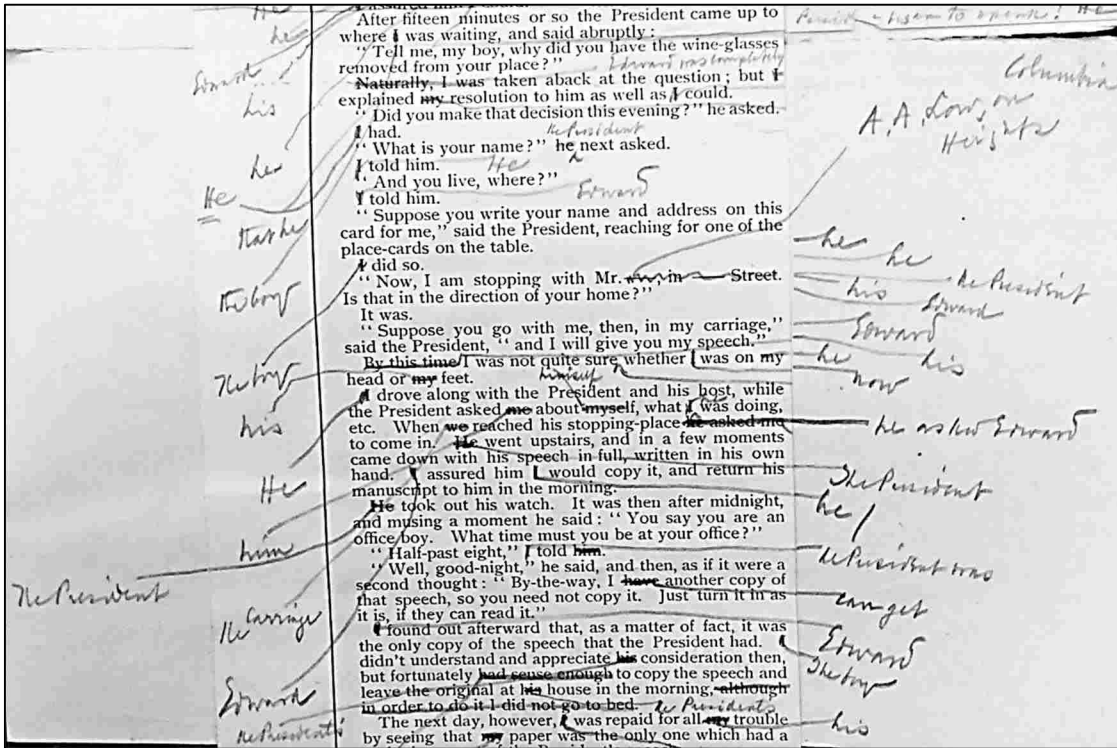 After fifteen minutes or so the President came up to
where I was waiting, and said abruptly :
" Tell me, my boy, why did you have the wine-glasses
removed from your place? " Edward was completely
Naturally, I was taken aback at the question ; but I
explained my resolution to him as well as I could.
" Did you make that decision this evening? " he asked.
I had.
the President
" What is your name? " he next asked.
I told him. He
" And you live, where? "
I told him. Edward
" Suppose you write your name and address on this
card for me," said the President, reaching for one of the
place-cards on the table.
I did so.
" Now, I am stopping with Mr. in Street.
Is that in the direction of your home? "
It was.
" Suppose you go with me, then, in my carriage,"
said the President, " and I will give you my speech."
By this time I was not quite sure whether I was on my
head or my feet.
himself
I drove along with the President and his host, while
the President asked me about myself, what I was doing,
etc. When we reached his stopping-place he asked me
to come in. He went upstairs, and in a few moments
came down with his speech in full, written in his own
hand. I assured him I would copy it, and return his
manuscript to him in the morning.
He took out his watch. It was then after midnight,
and musing a moment he said : " You say you are an
office boy. What time must you be at your office? "
" Half-past eight," I told him.
" Well, good-night," he said, and then, as if it were a
second thought : " By-the-way, I have another copy of
that speech, so you need not copy it. Just turn it in as
it is, if they can read it."
I found out afterward that, as a matter of fact, it was
the only copy of the speech that the President had. I
didn't understand and appreciate his consideration then,
but fortunately had sense enough to copy the speech and
leave the original at his house in the morning, although
in order to do it I did not go to bed. the President's
The next day, however, I was repaid for all my trouble
by seeing that my paper was the only one which had a
He
he
Edward
his
he
He
that he
the boy
The boy
his
He
him
The President
The Carriage
Edward
the President's
Columbia
A. A. Low, on
Heights
he
he
the President
his
Edward
Edward
he
his
now
he asked Edward
The President
he
the President was
can get
Edward
The boy
his